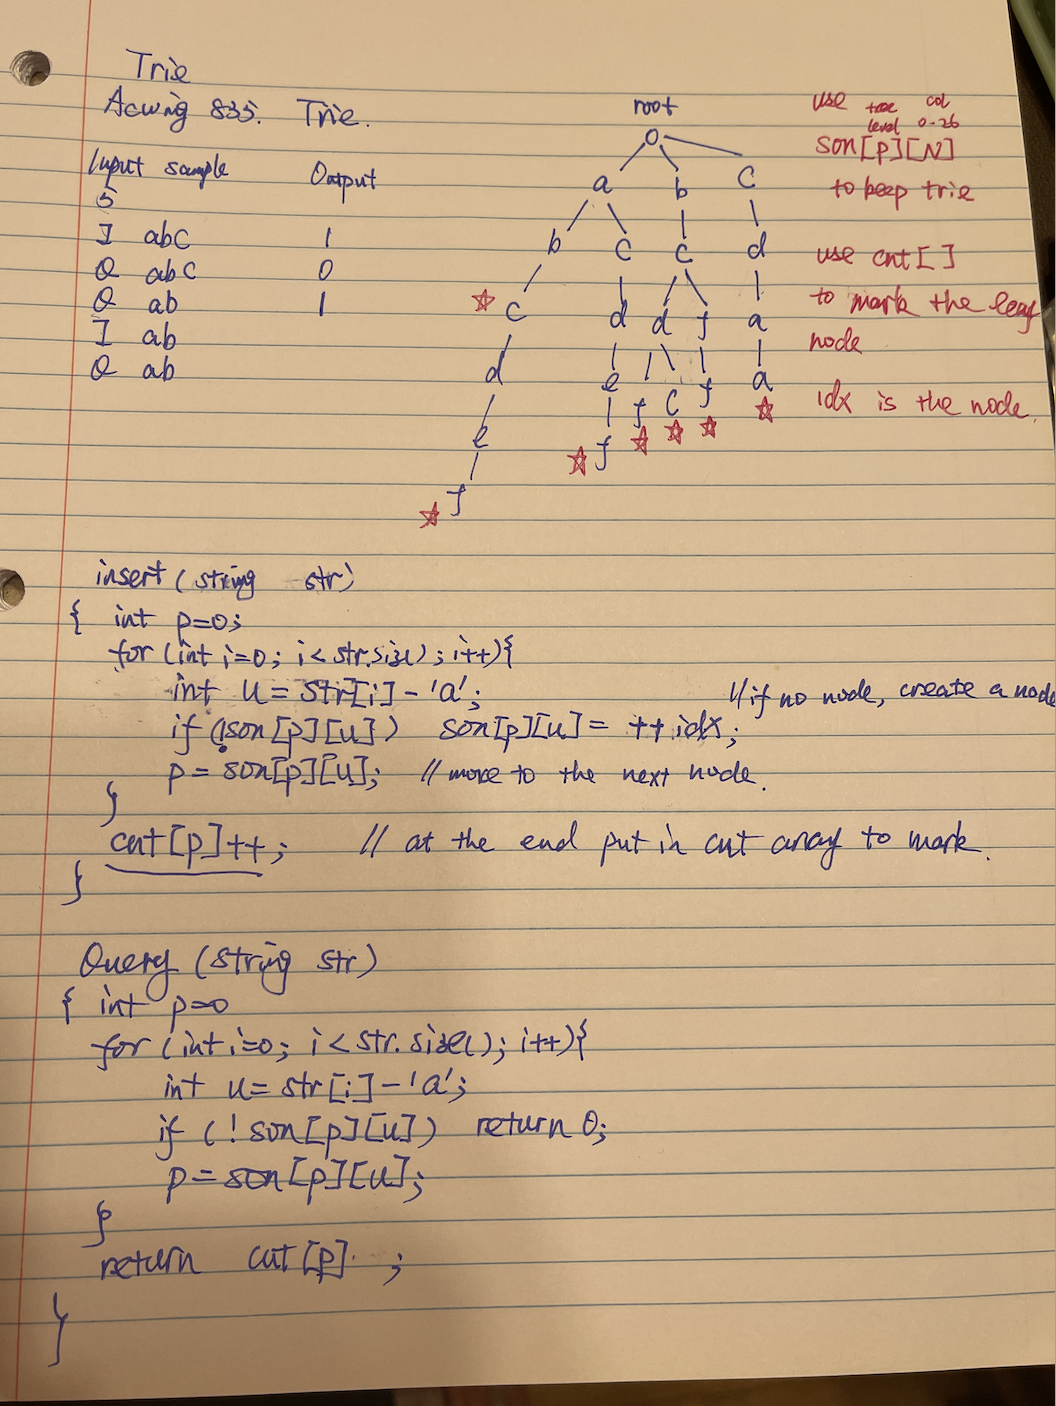 Trie
Acwing 835. Trie.
Input sample Output
5
I abc 1
Q abc 0
Q ab 1
I ab
Q ab
root
0
a b c
b c c d
☆ c d d f a
d e f c f a
☆ ☆ ☆ ☆
e ☆ f
☆ f
use tree level col 0-26
son[p][N]
to keep trie
use cnt[ ]
to mark the leaf
node
idx is the node.
insert (string str)
{ int p=0;
for (int i=0; i<str.size(); i++){
int u = str[i]-'a';
//if no node, create a node
if (!son[p][u]) son[p][u] = ++idx;
p = son[p][u]; // move to the next node.
}
cnt[p]++; // at the end put in cnt array to mark.
}
Query (string str)
{ int p=0
for (int i=0; i<str.size(); i++){
int u= str[i]-'a';
if (!son[p][u]) return 0;
p = son[p][u];
}
return cnt[p] ;
}